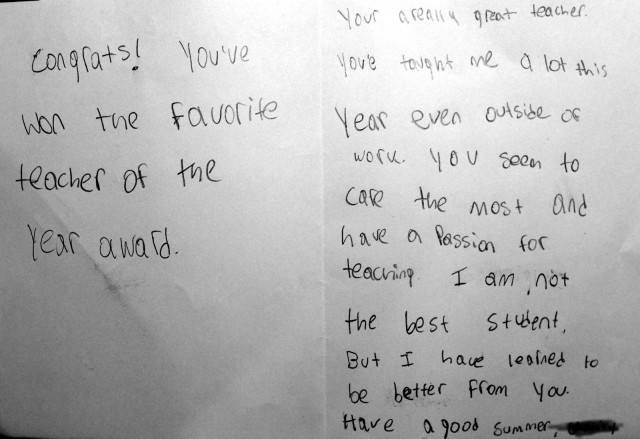 Congrats! You've
won the favorite
teacher of the
Year award.
Your a really great teacher.
You've taught me a lot this
Year even outside of
work. You seem to
care the most and
have a Passion for
teaching. I am not
the best student,
But I have learned to
be better from you.
Have a good summer,